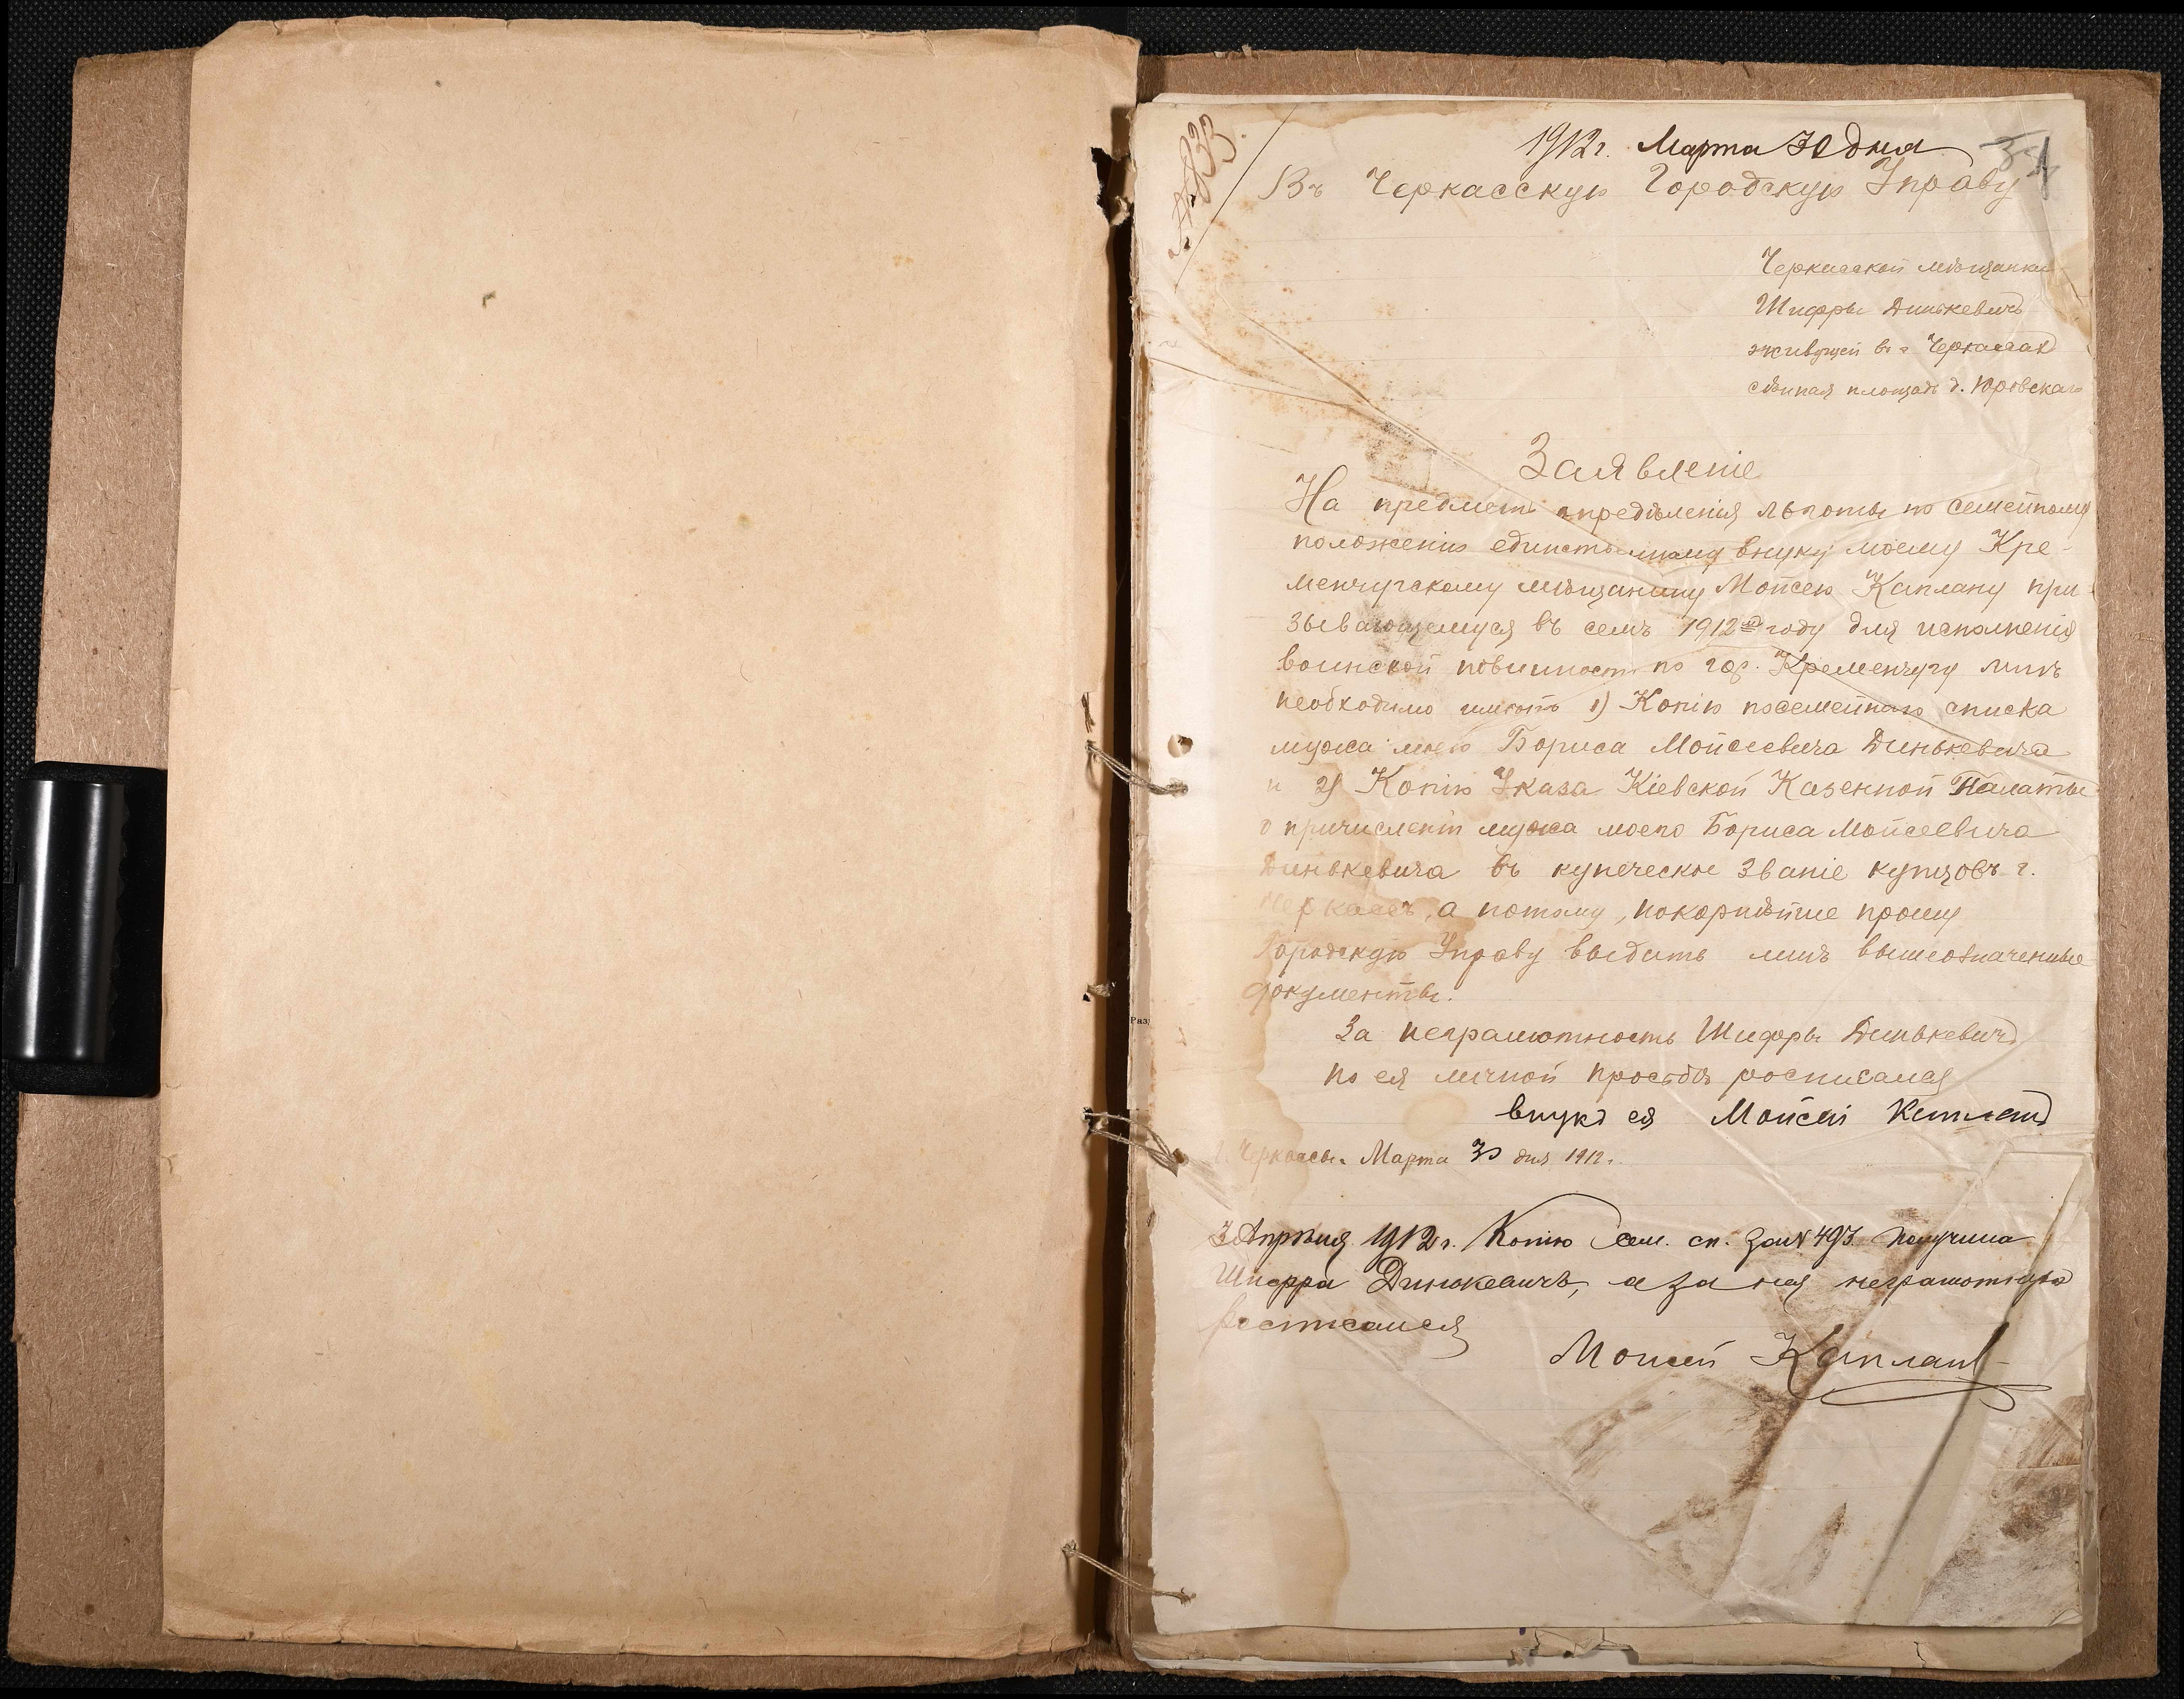 1912 г. Марта 30 дня
Въ Черкасскую Городскую Управу
Черкасской мѣщанки
Шифры Динькевичъ
живущей въ г Черкассах
сѣнная площадь д. Юровскаго
Заявленіе
На предметъ опредѣленія льготы по семейному
положенію единственному внуку моему Кре-
менчугскому мѣщанину Мойсею Каплану при-
зывающемуся въ семъ 1912 году для исполненія
воинской повинности по гор. Кременчугу мнѣ
необходимо имѣть 1) Копію посемейнаго списка
мужа моего Бориса Мойсеевича Динькевича
и 2) Копію Указа Кіевской Казенной Палаты
о причисленіи мужа моего Бориса Мойсеевича
Динькевича въ купеческое званіе купцовъ г.
Черкассъ, а потому, покорнѣйше прошу
Городскую Управу выдать мнѣ вышеозначенные
документы.
За неграмотность Шифры Динькевичъ
по ея личной просьбѣ росписался
внукъ ея Мойсей Капланъ
г. Черкассы. Марта 30 дня 1912 г.
3 Апрѣля 1912 г. Копію сем. сп. за № 493 получила
Шифра Динькевичъ, а за нея неграмотную
росписался
Мойсей Капланъ
Раз